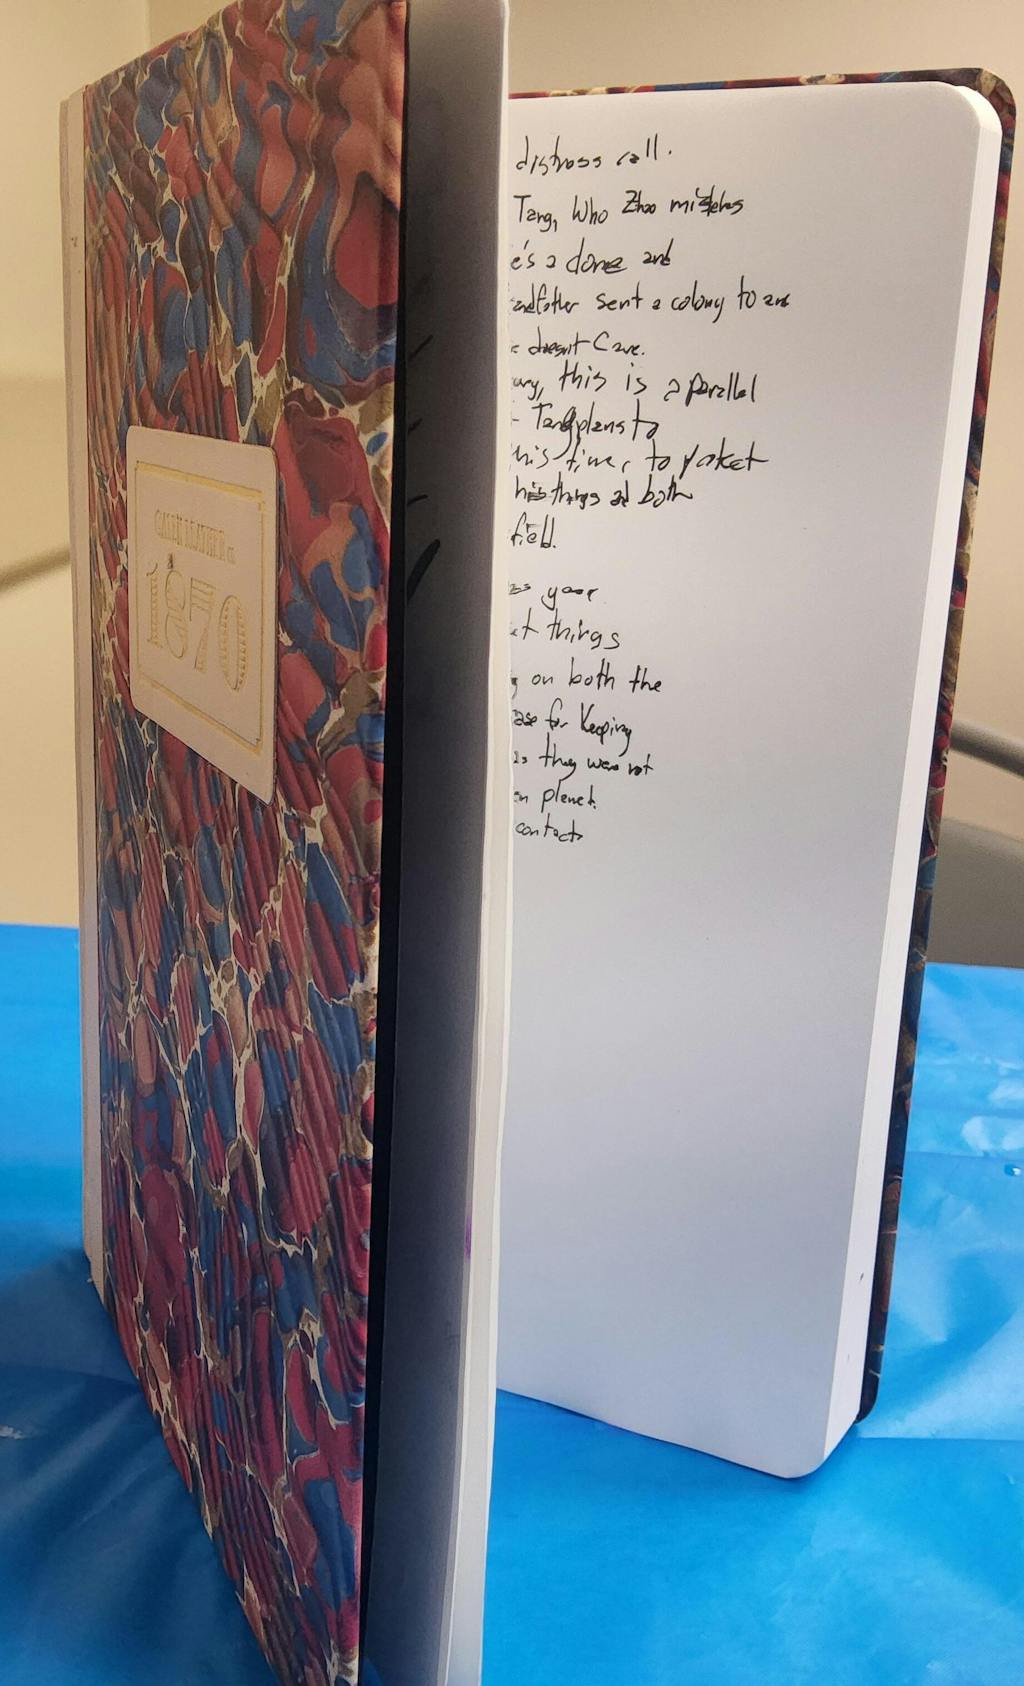 GALEN LEATHER Co
1870
distress call.
Tang, Who Zhao mistakes
e's a clone and
andfather sent a colony to an
doesn't Care.
this is a parallel
Tang plans to
his time, to
his things and both
field.
year
things
on both the
for Keeping
they were not
planet.
contact